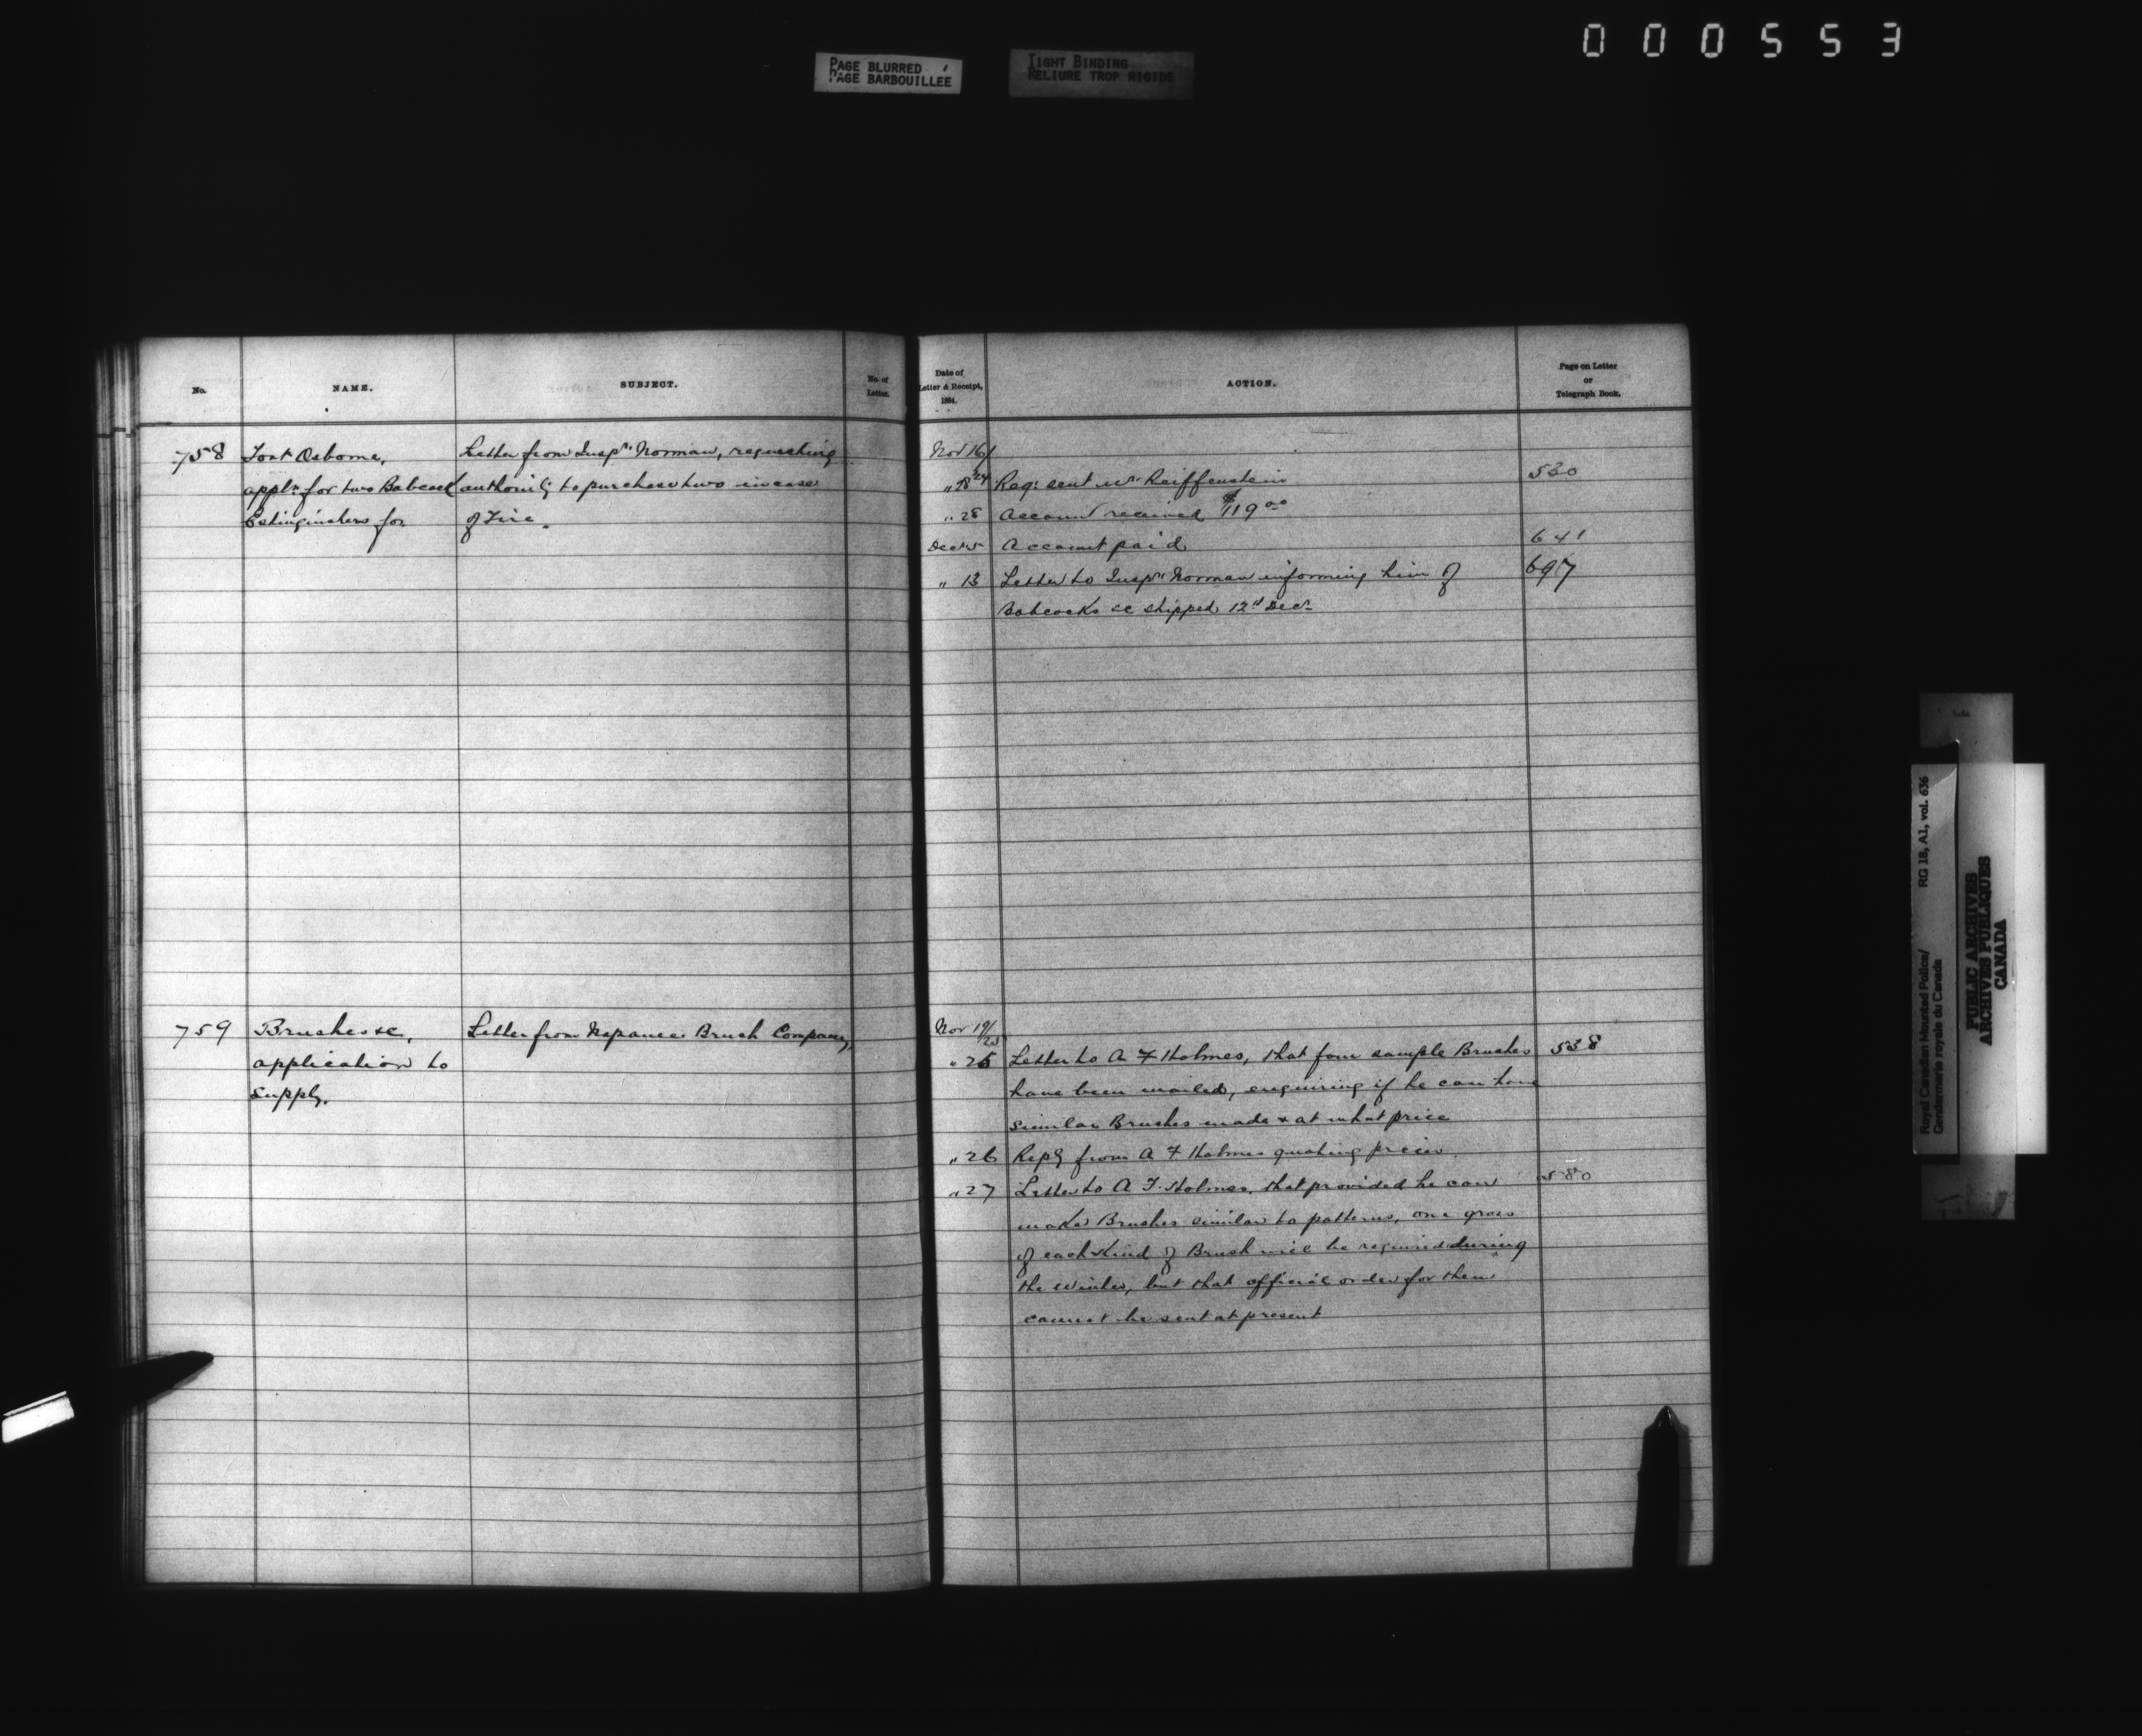 000553
PAGE BLURRED
PAGE BARBOUILLEE
TIGHT BINDING
RELIURE TROP RIGIDE
No.
NAME.
SUBJECT.
No. of
Letter.
Date of
Letter & Receipt,
1884.
ACTION.
Page on Letter
or
Telegraph Book.
758
Fort Osborne,
appln for two Babcock
Extinguishers for
Letter from Inspr Norman, requesting
authority to purchase two in case
of Fire.
Nov 16/24
" 25 Req: sent Mr Reiffenstein 530
" 28 Account received $119 00
Decr 5 Account paid 641
" 13 Letter to Inspr Norman informing him of 697
Babcocks &c shipped 12th Decr
759
Brushes &c,
application to
supply.
Letter from Napanee Brush Company,
Nov 19/25
" 25 Letter to A F Holmes, that four sample Brushes 538
have been mailed, enquiring if he can have
similar Brushes made & at what price
" 26 Reply from A F Holmes quoting prices.
" 27 Letter to A F. Holmes, that provided he can 580
make Brushes similar to patterns, one gross
of each kind of Brush will be required during
the winter, but that official order for them
cannot be sent at present
Royal Canadian Mounted Police/ RG 18, A1, vol. 636
Gendarmerie royale du Canada
PUBLIC ARCHIVES
ARCHIVES PUBLIQUES
CANADA